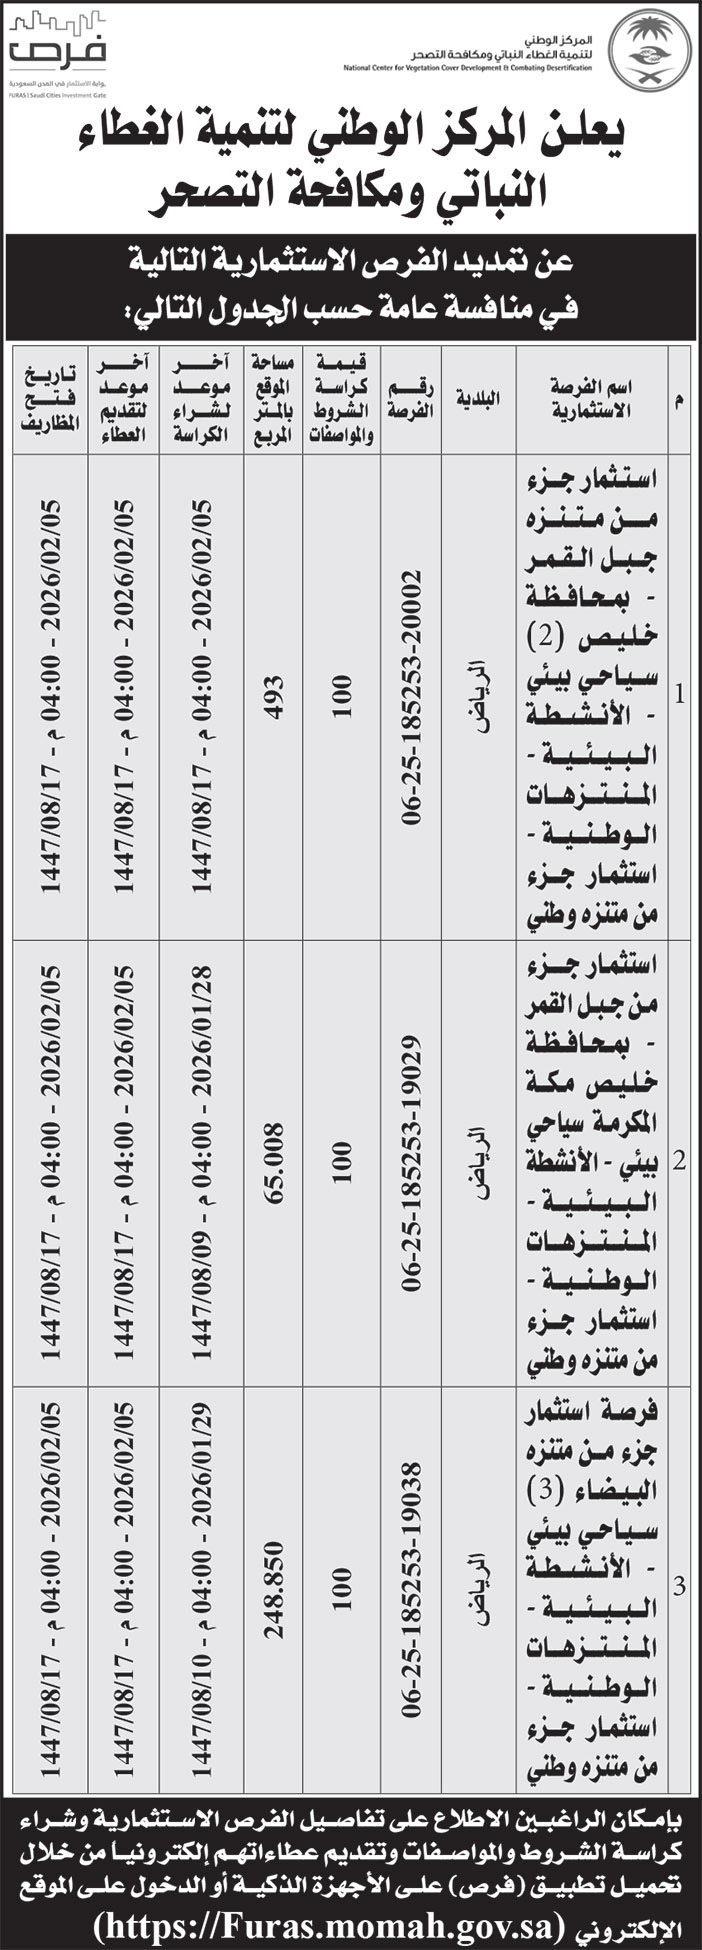 المركز الوطني
لتنمية الغطاء النباتي ومكافحة التصحر
National Center for Vegetation Cover Development & Combating Desertification
فرص
بوابة الاستثمار في المدن السعودية
FURAS | Saudi Cities Investment Gate
يعلن المركز الوطني لتنمية الغطاء
النباتي ومكافحة التصحر
عن تمديد الفرص الاستثمارية التالية
في منافسة عامة حسب الجدول التالي:
م
اسم الفرصة
الاستثمارية
البلدية
رقم
الفرصة
قيمة
كراسة
الشروط
والمواصفات
مساحة
الموقع
بالمتر
المربع
آخر
موعد
لشراء
الكراسة
آخر
موعد
لتقديم
العطاء
تاريخ
فتح
المظاريف
1
استثمار جزء
من متنزه
جبل القمر
- بمحافظة
خليص (2)
سياحي بيئي
- الأنشطة
البيئية -
المنتزهات
الوطنية -
استثمار جزء
من متنزه وطني
الرياض
06-25-185253-20002
100
493
1447/08/17 - م 04:00 - 2026/02/05
1447/08/17 - م 04:00 - 2026/02/05
1447/08/17 - م 04:00 - 2026/02/05
2
استثمار جزء
من جبل القمر
- بمحافظة
خليص مكة
المكرمة سياحي
بيئي - الأنشطة
البيئية -
المنتزهات
الوطنية -
استثمار جزء
من متنزه وطني
الرياض
06-25-185253-19029
100
65.008
1447/08/09 - م 04:00 - 2026/01/28
1447/08/17 - م 04:00 - 2026/02/05
1447/08/17 - م 04:00 - 2026/02/05
3
فرصة استثمار
جزء من متنزه
البيضاء (3)
سياحي بيئي
- الأنشطة
البيئية -
المنتزهات
الوطنية -
استثمار جزء
من متنزه وطني
الرياض
06-25-185253-19038
100
248.850
1447/08/10 - م 04:00 - 2026/01/29
1447/08/17 - م 04:00 - 2026/02/05
1447/08/17 - م 04:00 - 2026/02/05
بإمكان الراغبين الاطلاع على تفاصيل الفرص الاستثمارية وشراء
كراسة الشروط والمواصفات وتقديم عطاءاتهم إلكترونياً من خلال
تحميل تطبيق (فرص) على الأجهزة الذكية أو الدخول على الموقع
الإلكتروني (https://Furas.momah.gov.sa)